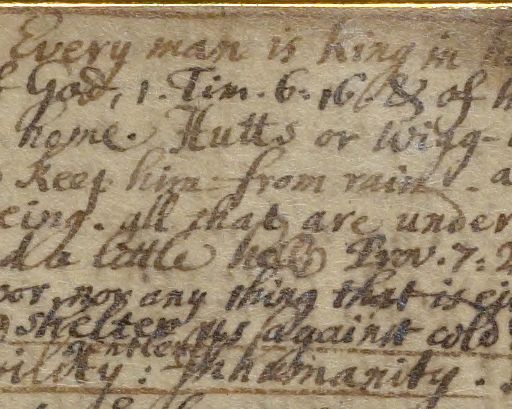 Every man is king in
f God, 1. Tim. 6. 16. & of
home. Hutts or wigg-
keep him from rain. a
eing. all that are under
d a little Prov. 7. 2
oor, nor any thing that is
shelter us against cold
Gentleness
ility: Inhumanity.